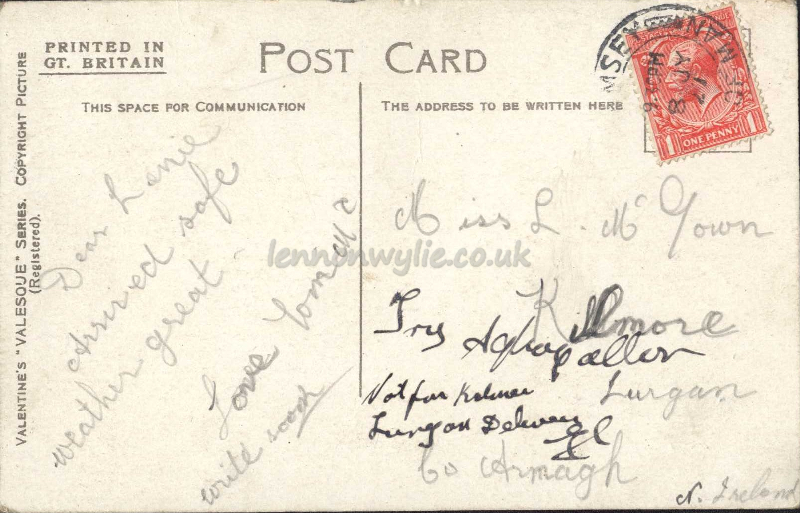 PRINTED IN
GT. BRITAIN
POST CARD
THIS SPACE FOR COMMUNICATION
THE ADDRESS TO BE WRITTEN HERE
VALENTINE'S "VALESQUE" SERIES. COPYRIGHT PICTURE
(Registered).
Dear Lenie
Arrived safe
weather great
Love Tom
write soon
Miss L. McGown
Kilmore
Lurgan
Co Armagh
N. Ireland
Try Aghagallon
Not for Kilmore
Lurgan Delivery
RAMSEY
ISLE OF MAN
1 ONE PENNY 1
lennonwylie.co.uk